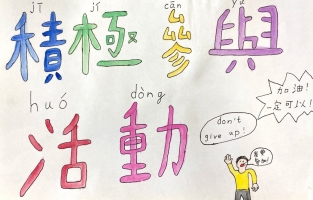 jī jí cān yù
積極參與
huó dòng
活動
加油!
一定可以!
don't
give up!